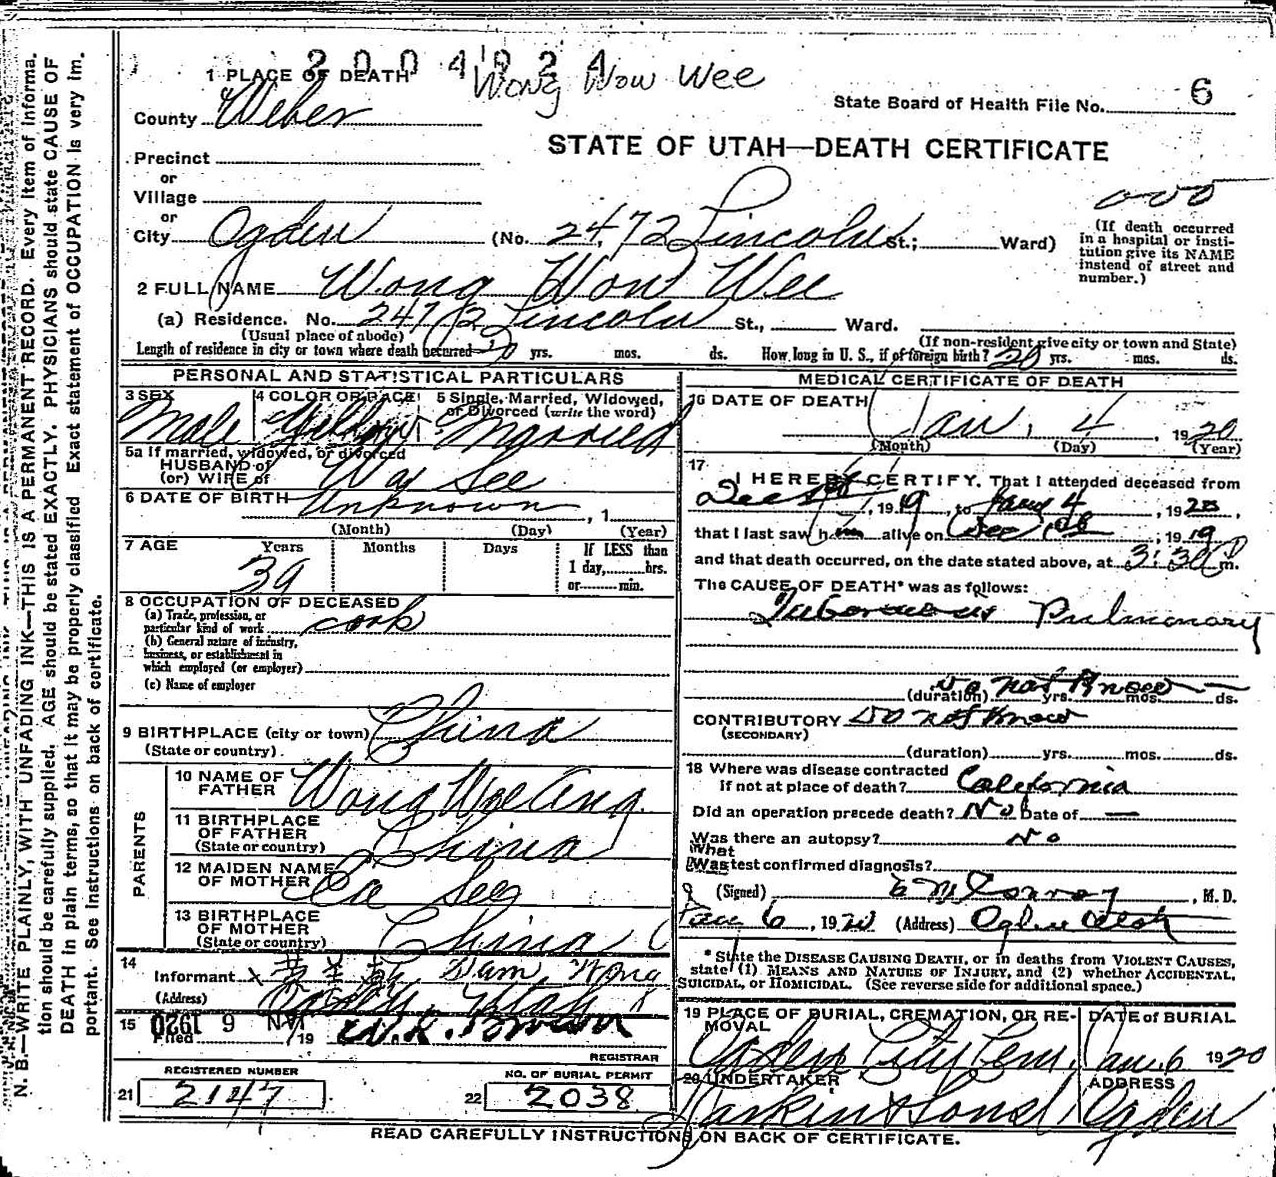 2004024
Wong Wow Wee
1 PLACE OF DEATH
County Weber
State Board of Health File No. 6
STATE OF UTAH—DEATH CERTIFICATE
Precinct
or
Village
or
City Ogden (No. 2472 Lincoln St.; Ward)
(If death occurred in a hospital or insti-
tution give its NAME
instead of street and
number.)
2 FULL NAME Wong Wow Wee
(a) Residence. No. 2472 Lincoln St., Ward.
(Usual place of abode) (If non-resident give city or town and State)
Length of residence in city or town where death occurred yrs. mos. ds. How long in U. S., if of foreign birth? 20 yrs. mos. ds.
PERSONAL AND STATISTICAL PARTICULARS
3 SEX Male
4 COLOR OR RACE Yellow
5 Single, Married, Widowed, or Divorced (write the word) Married
5a If married, widowed, or divorced
HUSBAND of
(or) WIFE of See
6 DATE OF BIRTH Unknown, 1
(Month) (Day) (Year)
7 AGE Years Months Days If LESS than
39 1 day, hrs.
or min.
8 OCCUPATION OF DECEASED
(a) Trade, profession, or
particular kind of work cook
(b) General nature of industry,
business, or establishment in
which employed (or employer)
(c) Name of employer
9 BIRTHPLACE (city or town) China
(State or country)
PARENTS
10 NAME OF FATHER Wong
11 BIRTHPLACE OF FATHER (State or country) China
12 MAIDEN NAME OF MOTHER See
13 BIRTHPLACE OF MOTHER (State or country) China
14
Informant Sam Wong
(Address) Ogden, Utah
15 Filed JAN 6 1920 19 W.K. Brown
REGISTRAR
REGISTERED NUMBER NO. OF BURIAL PERMIT
21 2147 22 2038
MEDICAL CERTIFICATE OF DEATH
16 DATE OF DEATH
Jan. 4, 1920
(Month) (Day) (Year)
17
I HEREBY CERTIFY, That I attended deceased from
Dec, 1919, to Jan 4, 1920,
that I last saw him alive on Dec, 1919
and that death occurred, on the date stated above, at 3:30 P m.
The CAUSE OF DEATH* was as follows:
Tuberculosis Pulmonary
Do not Know
(duration) yrs. mos. ds.
CONTRIBUTORY Do not Know
(SECONDARY)
(duration) yrs. mos. ds.
18 Where was disease contracted
if not at place of death? California
Did an operation precede death? No Date of —
Was there an autopsy? No
What test confirmed diagnosis?
(Signed) E M Conroy, M. D.
Jan 6, 1920 (Address) Ogden Utah
* State the DISEASE CAUSING DEATH, or in deaths from VIOLENT CAUSES,
state (1) MEANS AND NATURE OF INJURY, and (2) whether ACCIDENTAL,
SUICIDAL, or HOMICIDAL. (See reverse side for additional space.)
19 PLACE OF BURIAL, CREMATION, OR RE-
MOVAL
Ogden City Cem.
DATE of BURIAL
Jan. 6 1920
20 UNDERTAKER
Larkin & Sons
ADDRESS
Ogden
READ CAREFULLY INSTRUCTIONS ON BACK OF CERTIFICATE.
N. B.—WRITE PLAINLY, WITH UNFADING INK—THIS IS A PERMANENT RECORD. Every item of informa-
tion should be carefully supplied. AGE should be stated EXACTLY. PHYSICIANS should state CAUSE OF
DEATH in plain terms, so that it may be properly classified. Exact statement of OCCUPATION is very im-
portant. See instructions on back of certificate.